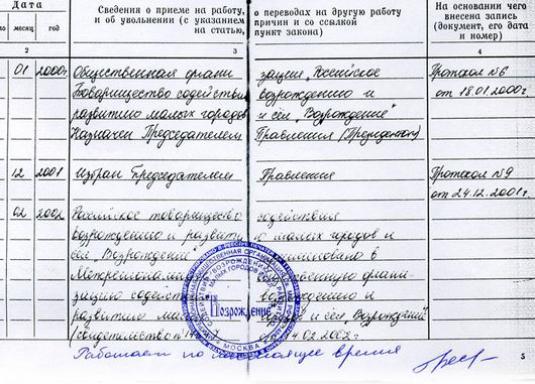 Дата Сведения о приеме на работу, о переводах на другую работу На основании чего
и об увольнении (с указанием причин и со ссылкой внесена запись
месяц год на статью, пункт закона) (документ, его дата и номер)
2 3 4
01 2000г. Общественная органи зация „Российское Протокол №6
Товарищество содействия возрождению и от 18.01.2000г.
развитию малых городов и сёл „Возрождение"
Назначен Председателем Правления (Президентом)
12 2001 Избран Председателем Правления Протокол №9
от 24.12.2001г.
02 2002 Российское товарищество содействия
возрождению и развити ю малых городов и
сёл „Возрождение" в
органи-
зацию возрождению и
развитию и сёл „Возрождение"
(свидетельство 14.02.2002г
Возрождение
МОСКВА
Работает по настоящее время
5